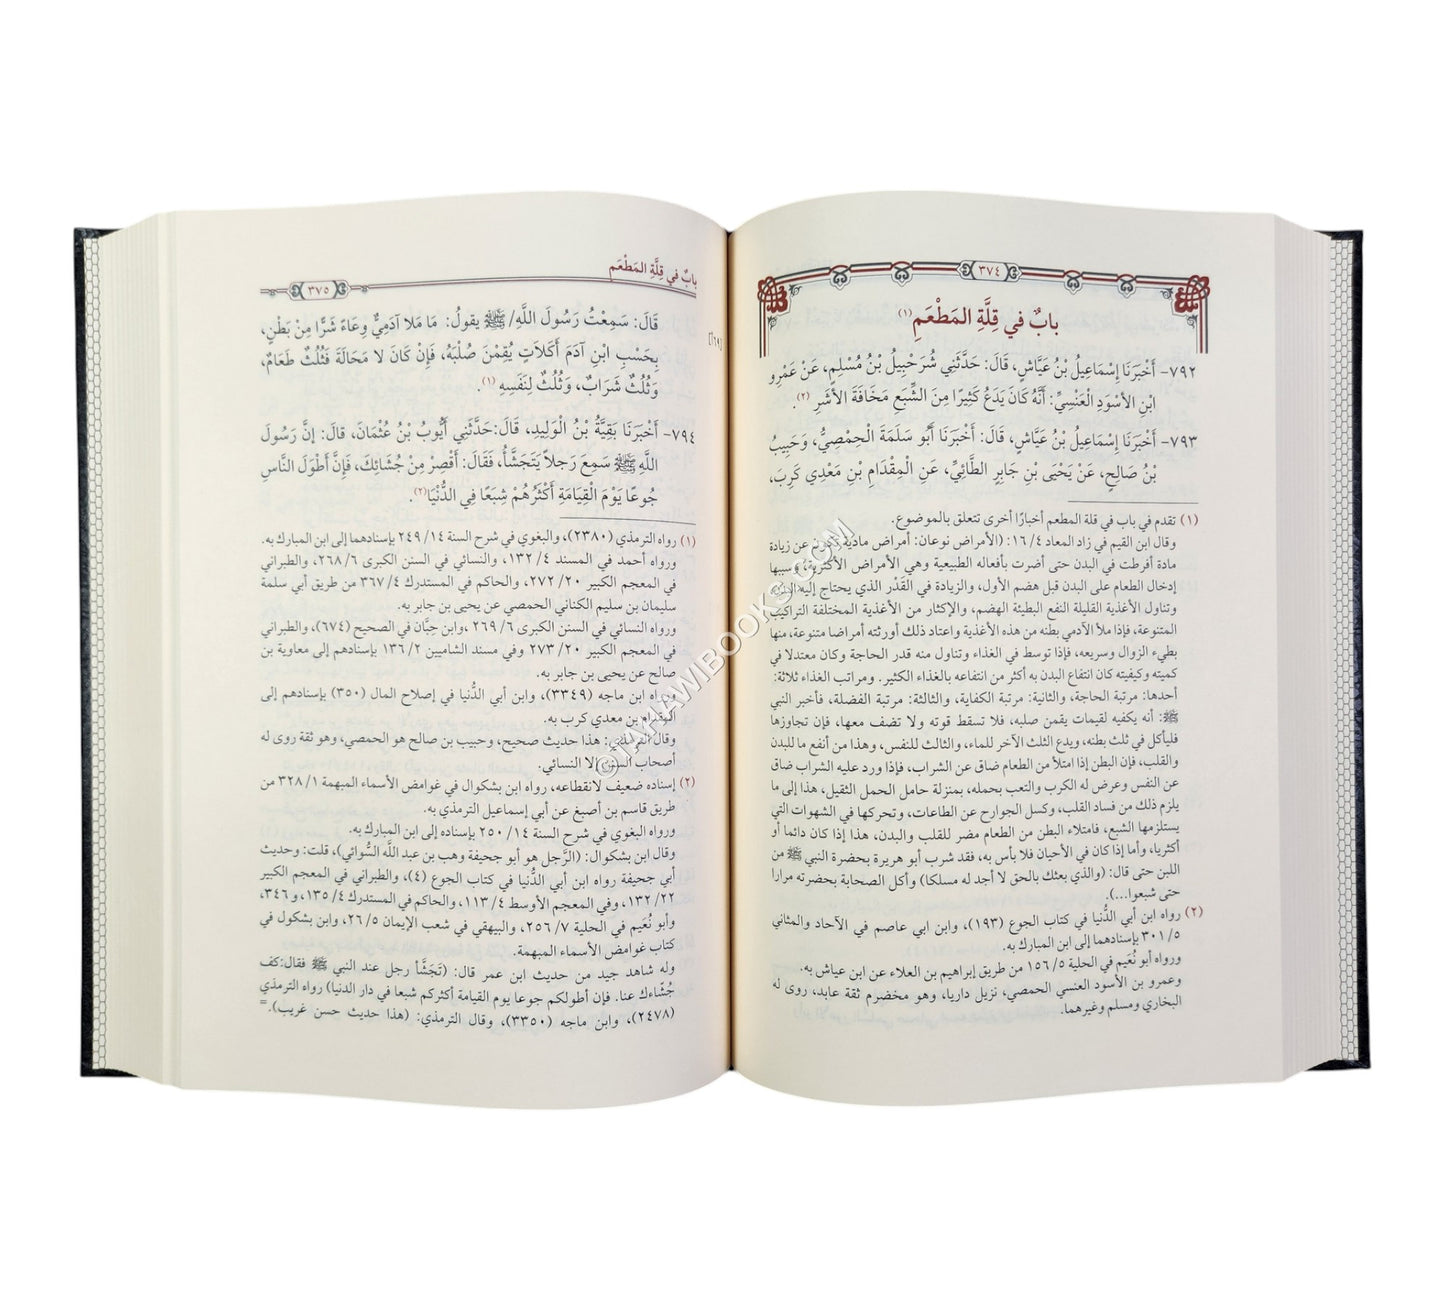 ٣٧٤
بابٌ في قِلَّةِ المَطْعَمِ(١)
٧٩٢- أَخْبَرَنَا إِسْمَاعِيلُ بْنُ عَيَّاشٍ، قَالَ: حَدَّثَنِي شُرَحْبِيلُ بْنُ مُسْلِمٍ، عَنْ عَمْرِو
ابْنِ الأَسْوَدِ العَنْسِيِّ: أَنَّهُ كَانَ يَدَعُ كَثِيرًا مِنَ الشِّبَعِ مَخَافَةَ الأَشَرِ(٢).
٧٩٣- أَخْبَرَنَا إِسْمَاعِيلُ بْنُ عَيَّاشٍ، قَالَ: أَخْبَرَنَا أَبُو سَلَمَةَ الْحِمْصِيُّ، وَحَبِيبُ
بْنُ صَالِحٍ، عَنْ يَحْيَى بْنِ جَابِرٍ الطَّائِيِّ، عَنِ الْمِقْدَامِ بْنِ مَعْدِي كَرِبَ،
(١) تقدم في باب في قلة المطعم أخبارًا أخرى تتعلق بالموضوع.
وقال ابن القيم في زاد المعاد ٤/ ١٦: (الأمراض نوعان: أمراض مادية تكون عن زيادة
مادة أفرطت في البدن حتى أضرت بأفعاله الطبيعية وهي الأمراض الأكثرية، وسببها
إدخال الطعام على البدن قبل هضم الأول، والزيادة في القَدْر الذي يحتاج إليه البدن،
وتناول الأغذية القليلة النفع البطيئة الهضم، والإكثار من الأغذية المختلفة التراكيب
المتنوعة، فإذا ملأ الآدمي بطنه من هذه الأغذية واعتاد ذلك أورثته أمراضا متنوعة، منها
بطيء الزوال وسريعه، فإذا توسط في الغذاء وتناول منه قدر الحاجة وكان معتدلا في
كميته وكيفيته كان انتفاع البدن به أكثر من انتفاعه بالغذاء الكثير. ومراتب الغذاء ثلاثة:
أحدها: مرتبة الحاجة، والثانية: مرتبة الكفاية، والثالثة: مرتبة الفضلة، فأخبر النبي
ﷺ: أنه يكفيه لقيمات يقمن صلبه، فلا تسقط قوته ولا تضف معها، فإن تجاوزها
فليأكل في ثلث بطنه، ويدع الثلث الآخر للماء، والثالث للنفس، وهذا من أنفع ما للبدن
والقلب، فإن البطن إذا امتلأ من الطعام ضاق عن الشراب، فإذا ورد عليه الشراب ضاق
عن النفس وعرض له الكرب والتعب بحمله، بمنزلة حامل الحمل الثقيل، هذا إلى ما
يلزم ذلك من فساد القلب، وكسل الجوارح عن الطاعات، وتحركها في الشهوات التي
يستلزمها الشبع، فامتلاء البطن من الطعام مضر للقلب والبدن، هذا إذا كان دائما أو
أكثريا، وأما إذا كان في الأحيان فلا بأس به، فقد شرب أبو هريرة بحضرة النبي ﷺ من
اللبن حتى قال: (والذي بعثك بالحق لا أجد له مسلكا) وأكل الصحابة بحضرته مرارا
حتى شبعوا...).
(٢) رواه ابن أبي الدُّنيا في كتاب الجوع (١٩٣)، وابن ابي عاصم في الآحاد والمثاني
٥/ ٣٠١ بإسنادهما إلى ابن المبارك به.
ورواه أبو نُعَيم في الحلية ٥/ ١٥٦ من طريق إبراهيم بن العلاء عن ابن عياش به.
وعمرو بن الأسود العنسي الحمصي، نزيل داريا، وهو مخضرم ثقة عابد، روى له
البخاري ومسلم وغيرهما.
بابٌ في قِلَّةِ المَطْعَمِ
٣٧٥
قَالَ: سَمِعْتُ رَسُولَ اللَّهِ/ ﷺ يقولُ: مَا مَلَا آدَمِيٌّ وِعَاءً شَرًّا مِنْ بَطْنٍ،
[١٦٩]
بِحَسْبِ ابْنِ آدَمَ أَكَلَاتٍ يُقِمْنَ صُلْبَهُ، فَإِنْ كَانَ لا مَحَالَةَ فَثُلُثُ طَعَامٌ،
وَثُلُثٌ شَرَابٌ، وَثُلُثٌ لِنَفَسِهِ(١).
٧٩٤- أَخْبَرَنَا بَقِيَّةُ بْنُ الْوَلِيدِ، قَالَ:حَدَّثَنِي أَيُّوبُ بْنُ عُثْمَانَ، قالَ: إنَّ رَسُولَ
اللَّهِ ﷺ سَمِعَ رَجلاً يَتَجَشَّأُ، فَقَالَ: أَقْصِرْ مِنْ جُشَائِكَ، فَإِنَّ أَطْوَلَ النَّاسِ
جُوعًا يَوْمَ الْقِيَامَةِ أَكْثَرُهُمْ شِبَعًا فِي الدُّنْيَا(٢).
(١) رواه الترمذي (٢٣٨٠)، والبغوي في شرح السنة ١٤/ ٢٤٩ بإسنادهما إلى ابن المبارك به.
ورواه أحمد في المسند ٤/ ١٣٢، والنسائي في السنن الكبرى ٦/ ٢٦٨، والطبراني
في المعجم الكبير ٢٠/ ٢٧٢، والحاكم في المستدرك ٤/ ٣٦٧ من طريق أبي سلمة
سليمان بن سليم الكناني الحمصي عن يحيى بن جابر به.
ورواه النسائي في السنن الكبرى ٦/ ٢٦٩ ،وابن حِبَّان في الصحيح (٦٧٤)، والطبراني
في المعجم الكبير ٢٠/ ٢٧٣ وفي مسند الشاميين ٢/ ١٣٦ بإسنادهم إلى معاوية بن
صالح عن يحيى بن جابر به.
ورواه ابن ماجه (٣٣٤٩)، وابن أبي الدُّنيا في إصلاح المال (٣٥٠) بإسنادهم إلى
المقدام بن معدي كرب به.
وقال الترمذي: هذا حديث صحيح، وحبيب بن صالح هو الحمصي، وهو ثقة روى له
أصحاب السنن إلا النسائي.
(٢) إسناده ضعيف لانقطاعه، رواه ابن بشكوال في غوامض الأسماء المبهمة ١/ ٣٢٨ من
طريق قاسم بن أصبغ عن أبي إسماعيل الترمذي به.
ورواه البغوي في شرح السنة ١٤/ ٢٥٠ بإسناده إلى ابن المبارك به.
وقال ابن بشكوال: (الرَّجل هو أبو جحيفة وهب بن عبد اللَّه السُّوائي)، قلت: وحديث
أبي جحيفة رواه ابن أبي الدُّنيا في كتاب الجوع (٤)، والطبراني في المعجم الكبير
٢٢/ ١٣٢، وفي المعجم الأوسط ٤/ ١١٣، والحاكم في المستدرك ٤/ ١٣٥، و٣٤٦،
وأبو نُعَيم في الحلية ٧/ ٢٥٦، والبيهقي في شعب الإيمان ٥/ ٢٦، وابن بشكول في
كتاب غوامض الأسماء المبهمة.
وله شاهد جيد من حديث ابن عمر قال: (تَجَشَّأ رجل عند النبي ﷺ فقال:كف
جُشَاءك عنا. فإن أطولكم جوعا يوم القيامة أكثركم شبعا في دار الدنيا) رواه الترمذي
(٢٤٧٨)، وابن ماجه (٣٣٥٠)، وقال الترمذي: (هذا حديث حسن غريب). =
© TAMAWIBOOKS.COM